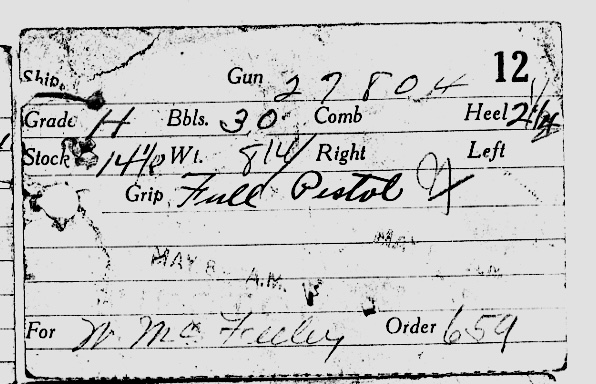 Ship. Gun 27804 12
Grade H Bbls. 30 Comb Heel 2 1/4
Stock 14 1/8 Wt. 8 1/4 Right Left
Grip Full Pistol
MAY 8 A.M.
For W Mc Feeley Order 659